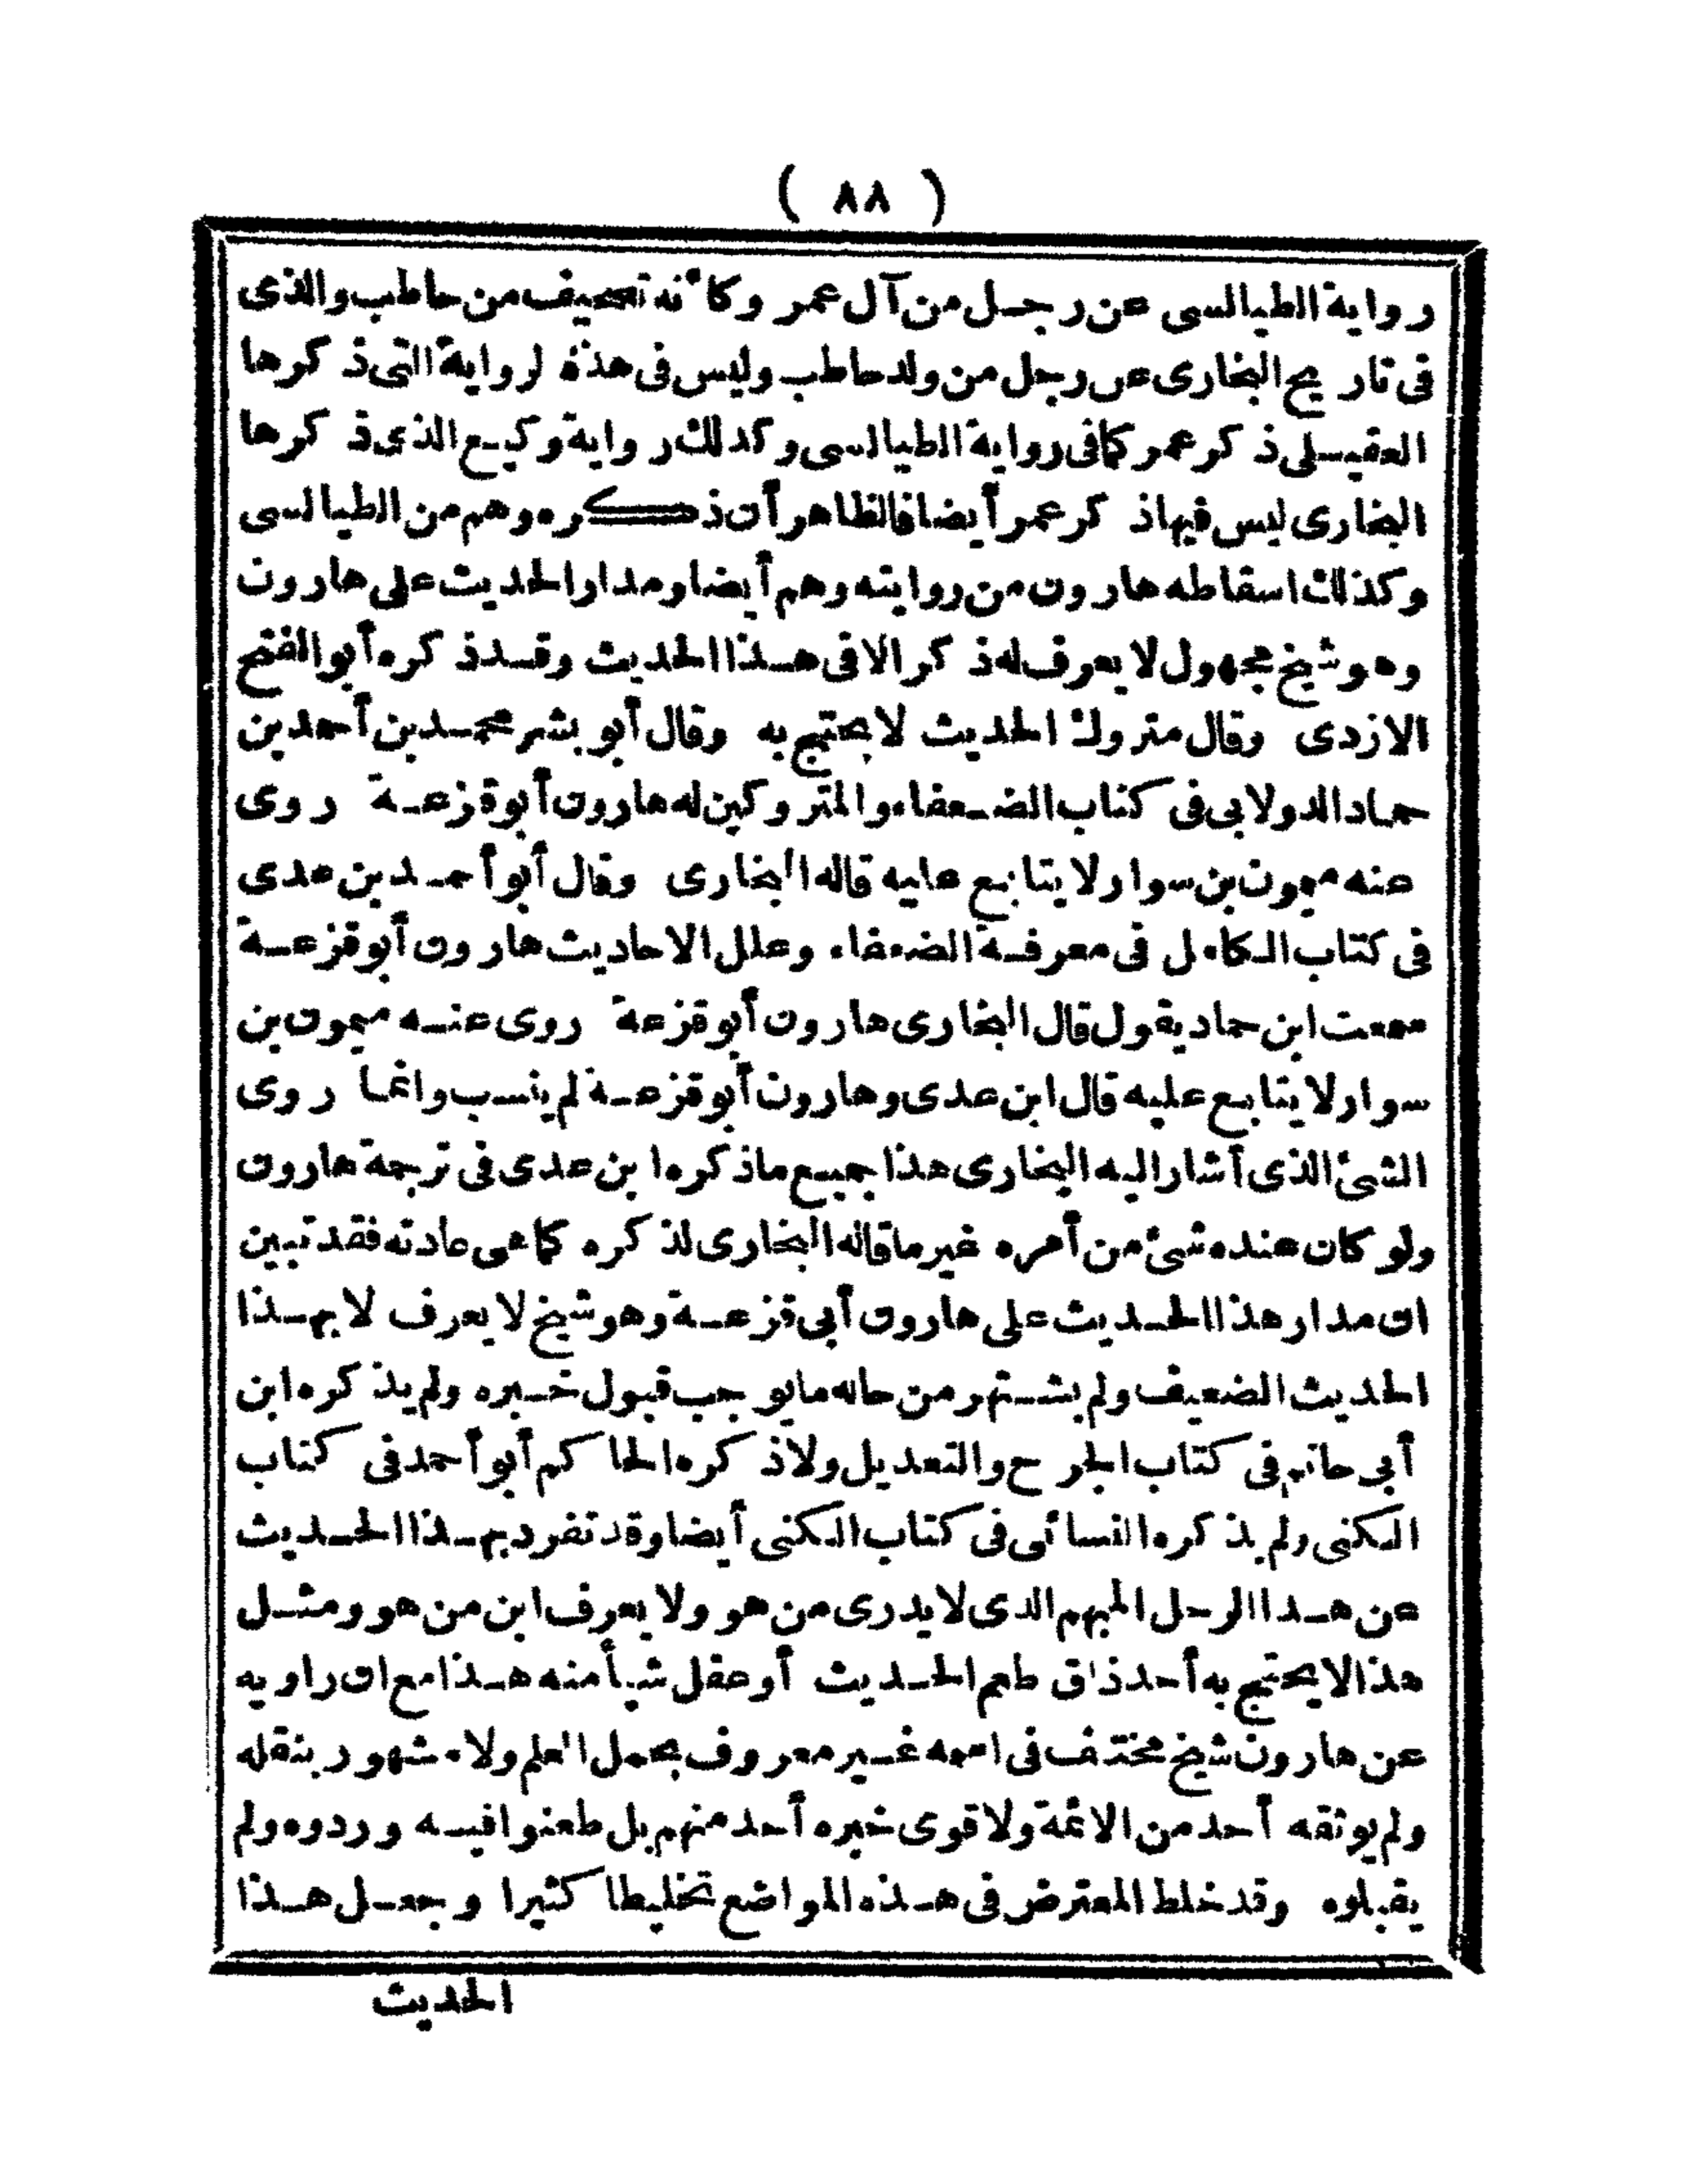 ( ٨٨ )
رواية الطيالسى عن رجل من آل عمر وكأنه تصحيف من حاطب والذى
فى تاريخ البخارى عن رجل من ولد حاطب وليس فى هذه لرواية التى ذكرها
العقيلى ذكر عمر كما فى رواية الطيالسى وكذلك رواية وكيع الذى ذكرها
البخارى ليس فيها ذكر عمر أيضا فالظاهر أن ذكره وهم من الطيالسى
وكذلك اسقاطه هارون من روايته وهم أيضا ومدار الحديث على هارون
وهو شيخ مجهول لا يعرف له ذكر الا فى هذا الحديث وقد ذكره أبو الفتح
الازدى وقال متروك الحديث لا يحتج به وقال أبو بشر محمد بن أحمد بن
حماد الدولابى فى كتاب الضعفاء والمتروكين له هارون أبو قزعة روى
عنه ميمون بن سوار لا يتابع عليه قاله البخارى وقال أبو أحمد بن عدى
فى كتاب الكامل فى معرفة الضعفاء وعلل الاحاديث هارون أبو قزعة
سمعت ابن حماد يقول قال البخارى هارون أبو قزعة روى عنه ميمون بن
سوار لا يتابع عليه قال ابن عدى وهارون أبو قزعة لم ينسب وانما روى
الشئ الذى أشار اليه البخارى هذا جميع ما ذكره ابن عدى فى ترجمة هارون
ولو كان عنده شئ من أمره غير ما قاله البخارى لذكره كما هى عادته فقد تبين
ان مدار هذا الحديث على هارون أبى قزعة وهو شيخ لا يعرف لا بهذا
الحديث الضعيف ولم يشتهر من حاله ما يوجب قبول خبره ولم يذكره ابن
أبى حاتم فى كتاب الجرح والتعديل ولا ذكره الحاكم أبو أحمد فى كتاب
الكنى ولم يذكره النسائى فى كتاب الكنى أيضا وقد تفرد بهذا الحديث
عن هذا الرجل المبهم الذى لا يدرى من هو ولا يعرف ابن من هو ومثل
هذا لا يحتج به أحد ذاق طعم الحديث أو عقل شيأ منه هذا مع ان راويه
عن هارون شيخ مختلف فى اسمه غير معروف بحمل العلم ولا مشهور بنقله
ولم يوثقه أحد من الائمة ولا قوى خبره أحد منهم بل طعنوا فيه وردوه ولم
يقبلوه وقد خلط المعترض فى هذه المواضع تخليطا كثيرا وجعل هذا
الحديث